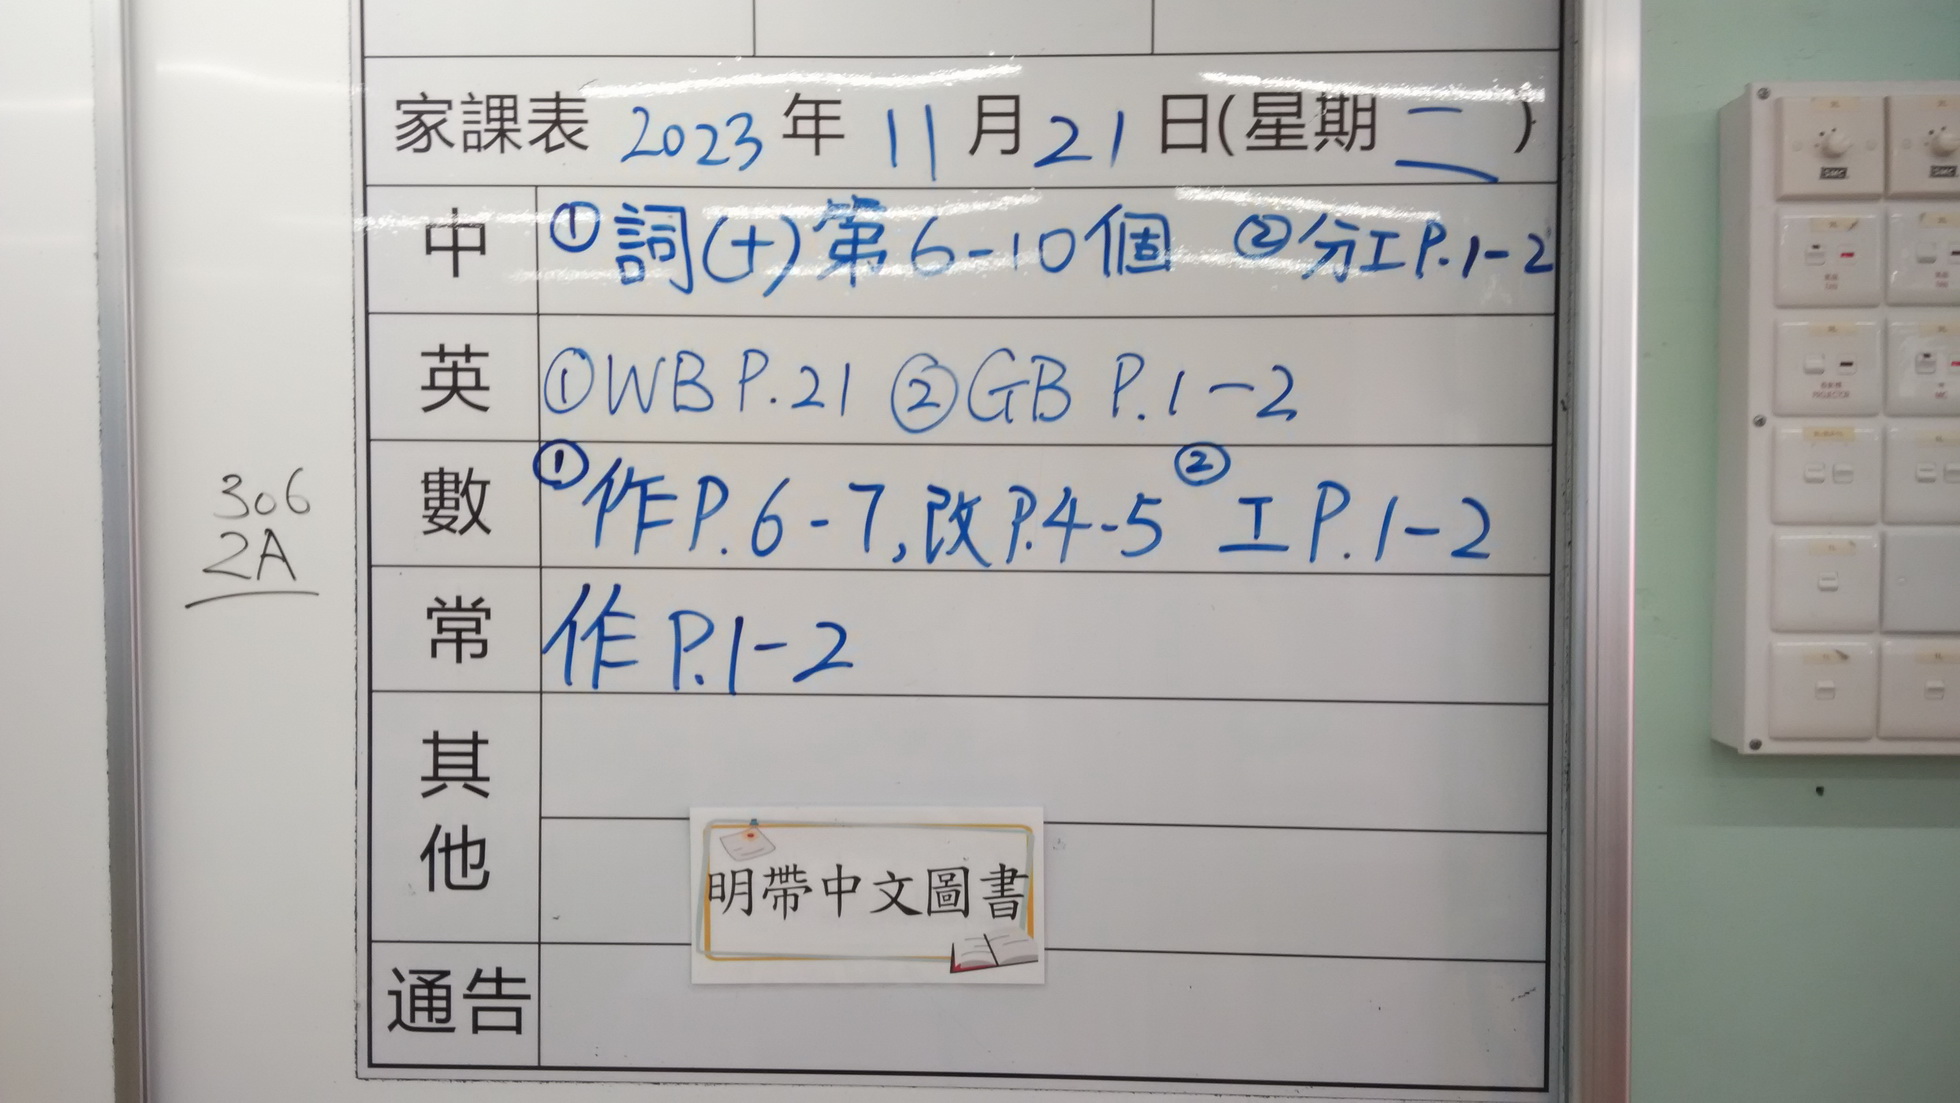 家課表 2023 年 11 月 21 日(星期二)
中 ①詞(十)第6-10個 ②分工P.1-2
英 ①WB P.21 ②GB P.1-2
306
2A
數 ①作P.6-7,改P.4-5 ②工P.1-2
常 作P.1-2
其他
明帶中文圖書
通告